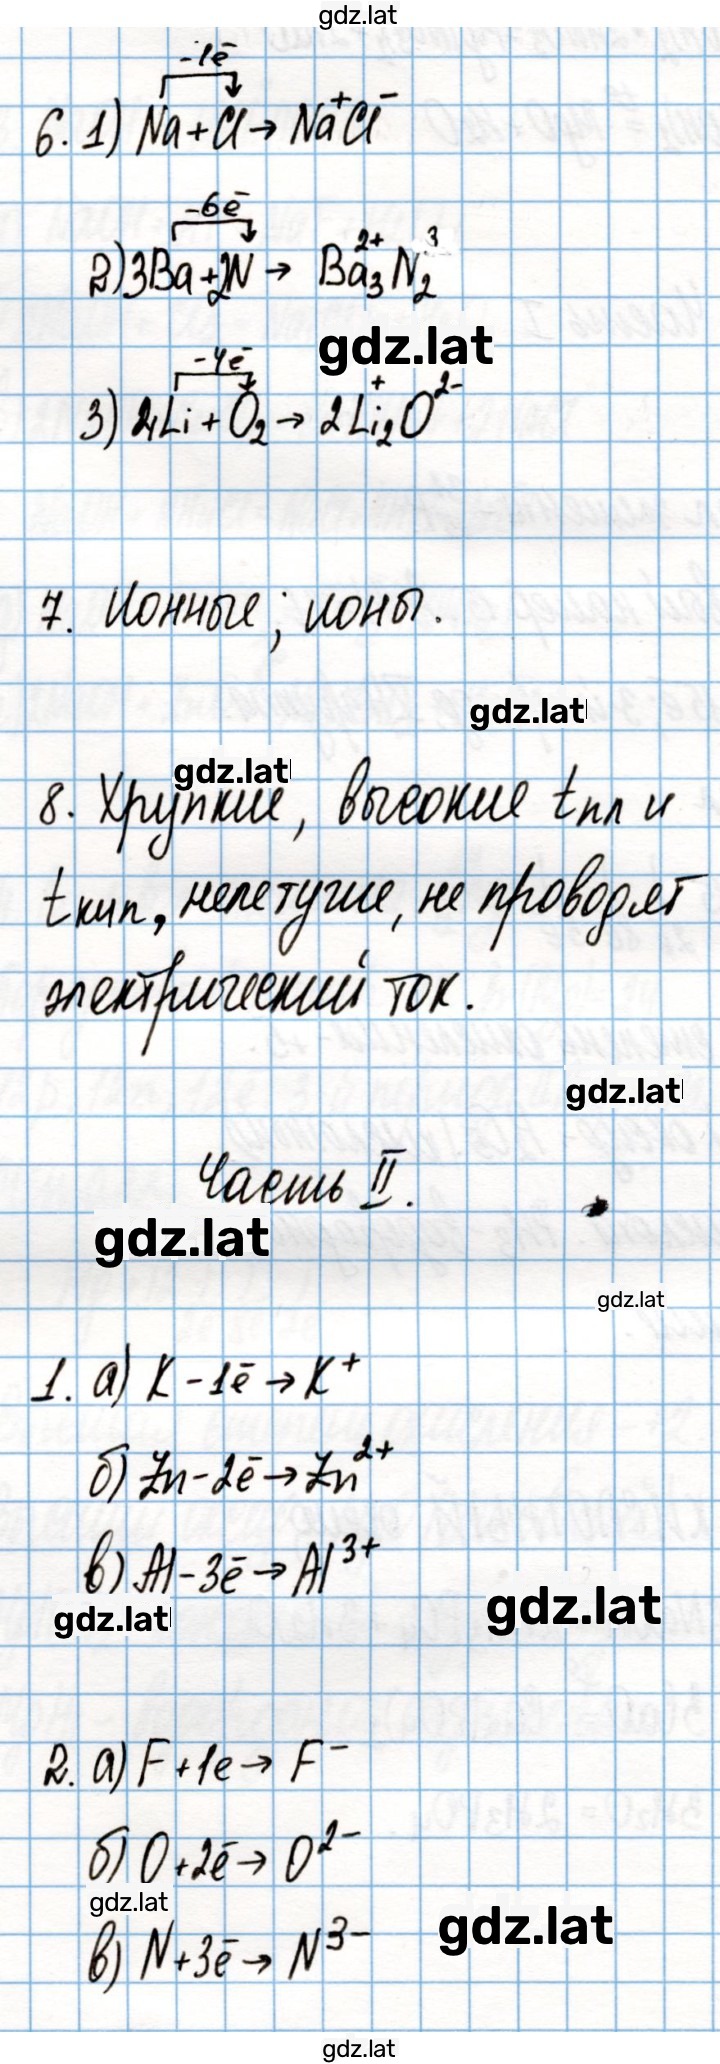 gdz.lat
-1ē
6. 1) Na + Cl → Na⁺Cl⁻
-6ē
2) 3Ba + 2N → Ba₃²⁺N₂³
gdz.lat
-4ē
3) 4Li + O₂ → 2Li₂⁺O²⁻
7. Ионные; ионы.
gdz.lat
gdz.lat
8. Хрупкие, высокие tпл и
tкип, нелетучие, не проводят
электрический ток.
gdz.lat
Часть II.
gdz.lat
gdz.lat
1. а) K - 1ē → K⁺
б) Zn - 2ē → Zn²⁺
в) Al - 3ē → Al³⁺
gdz.lat
gdz.lat
2. а) F + 1e → F⁻
б) O + 2ē → O²⁻
gdz.lat
gdz.lat
в) N + 3ē → N³⁻
gdz.lat